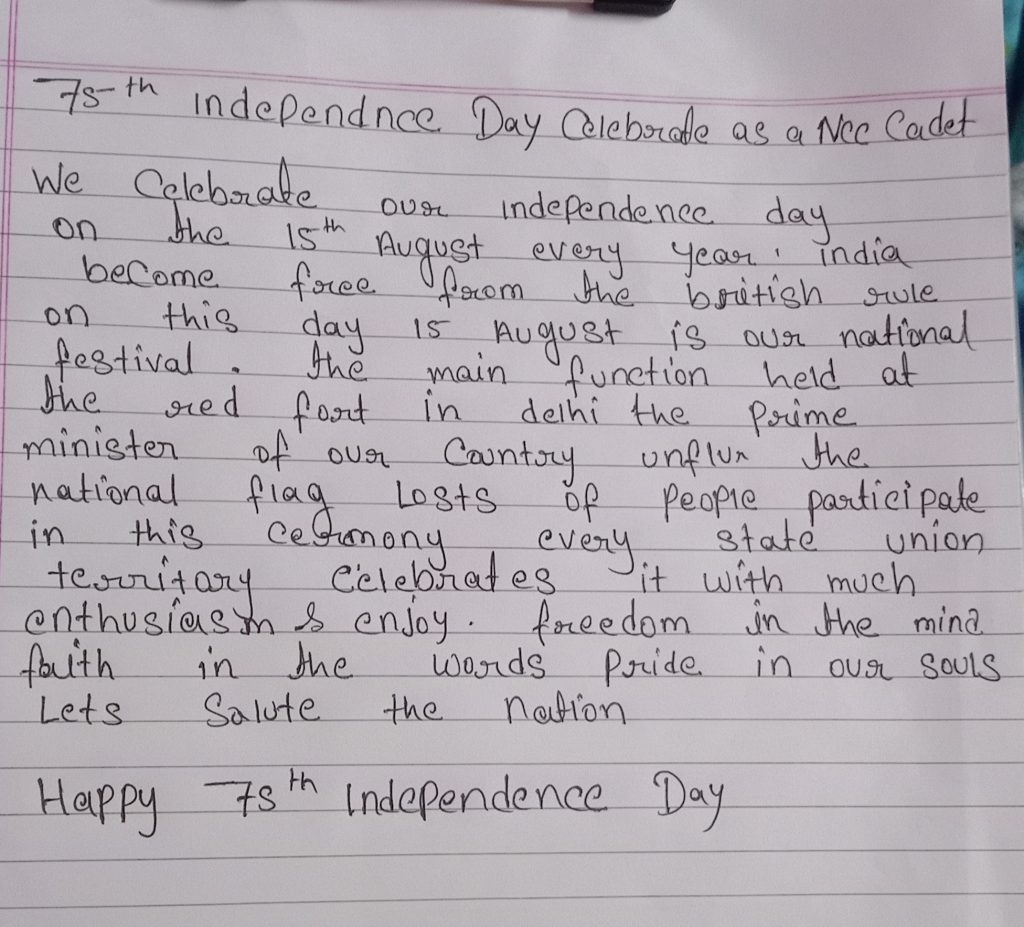 75th independnce Day Celebrate as a Ncc Cadet
We Celebrate our independence day
on the 15th August every year. india
become free from the british rule
on this day 15 August is our national
festival. the main function held at
the red fort in delhi the prime
minister of our Country unflur the
national flag Losts of people participate
in this ceremony every state union
territory celebrates it with much
enthusiasm & enjoy. freedom in the mind
faith in the words pride in our souls
Lets Salute the nation
Happy 75th Independence Day